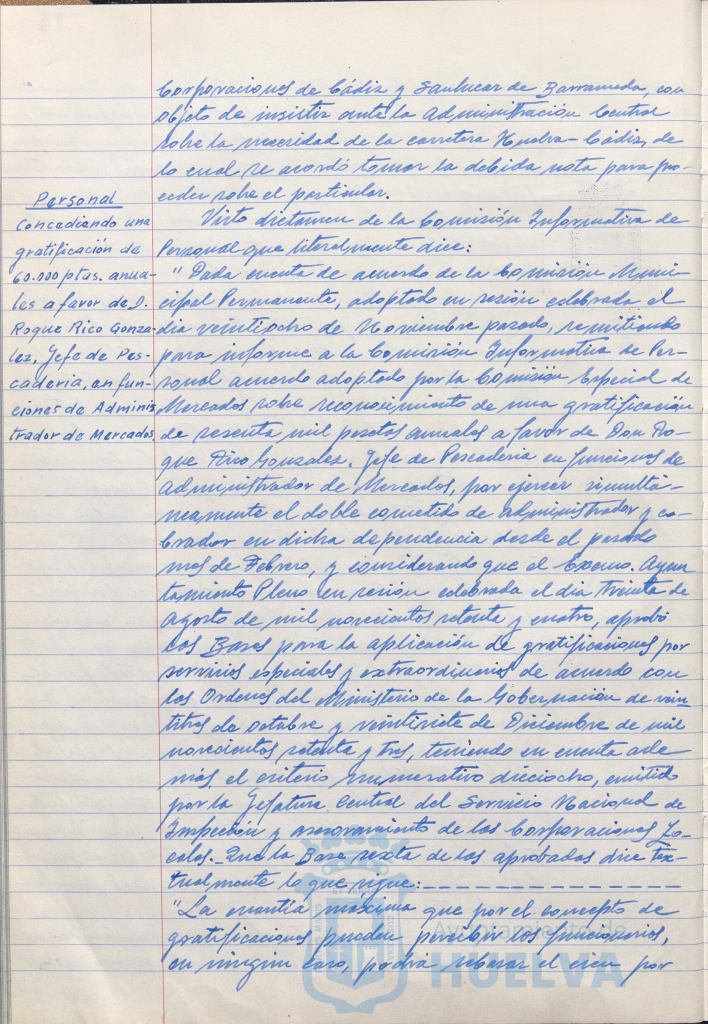 Corporaciones de Cádiz y Sanlucar de Barrameda, con
objeto de insistir ante la Administración Central
sobre la necesidad de la carretera Huelva-Cádiz, de
lo cual se acordó tomar la debida nota para pro-
ceder sobre el particular.
Personal
Concediendo una
gratificación de
60.000 ptas. anua-
les a favor de D.
Roque Rico Gonza-
lez, Jefe de Pes-
cadería, en fun-
ciones de Adminis
trador de Mercados
Visto dictamen de la Comisión Informativa de
Personal que literalmente dice:
"Dada cuenta de acuerdo de la Comisión Muni-
cipal Permanente, adoptado en sesión celebrada el
dia veintiocho de Noviembre pasado, remitiendo
para informe a la Comisión Informativa de Per-
sonal acuerdo adoptado por la Comisión Especial de
Mercados sobre reconocimiento de una gratificación
de sesenta mil pesetas anuales a favor de Don Ro-
que Rico Gonzalez, Jefe de Pescaderia en funciones de
Administrador de Mercados, por ejercer simultá-
neamente el doble cometido de administrador y co-
brador en dicha dependencia desde el pasado
mes de Febrero, y considerando que el Excmo. Ayun
tamiento Pleno en sesión celebrada el día treinta de
Agosto de mil novecientos setenta y cuatro, aprobó
las Bases para la aplicación de gratificaciones por
servicios especiales y extraordinarios de acuerdo con
las Ordenes del Ministerio de la Gobernación de vein
titres de octubre y veintisiete de Diciembre de mil
novecientos setenta y tres, teniendo en cuenta ade
más el criterio enumerativo dieciocho, emitido
por la Jefatura Central del Servicio Nacional de
Inspección y asesoramiento de las Corporaciones Lo-
cales.- Que la Base sexta de las aprobadas dice tex-
tualmente lo que sigue:
"La cuantía máxima que por el concepto de
gratificaciones pueden percibir los funcionarios,
en ningún caso, podrá rebasar el cien por
Ayuntamiento de
HUELVA